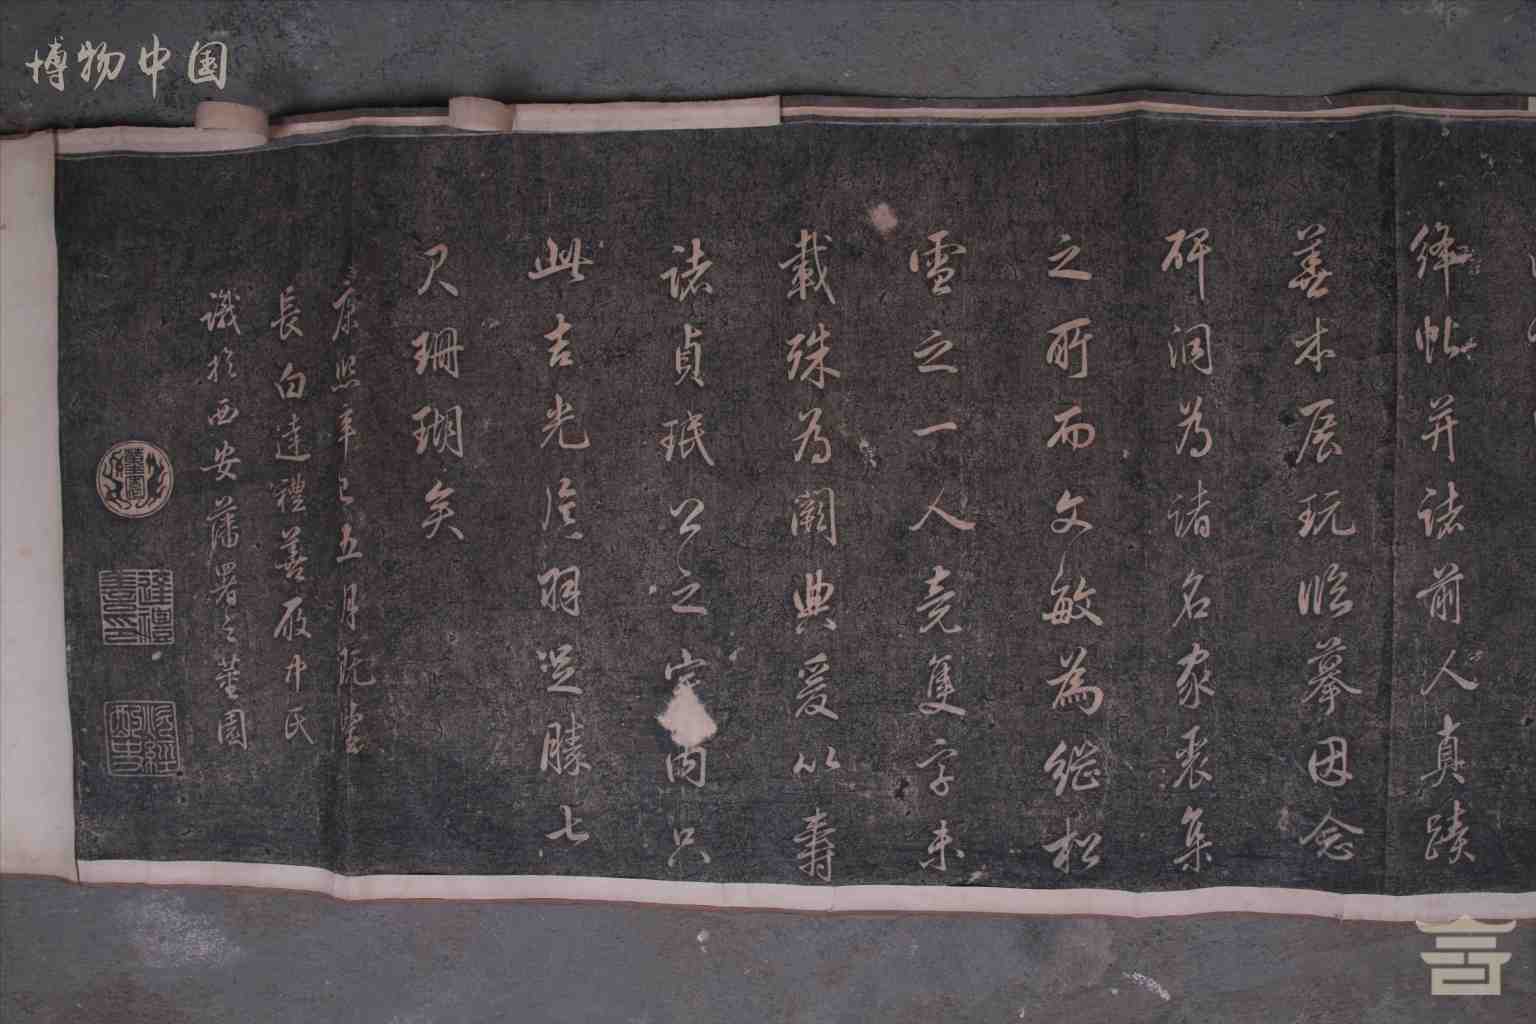 博物中国
绛帖并諸前人真蹟
善本展玩臨摹因念
碑洞为諸名家裒集
之所而文敏為繼松
雪之一人竟隻字未
載殊为闕典爰以壽
諸貞珉公之宇内只
此吉光片羽足勝七
尺珊瑚矣
康熙辛巳五月既望
長白達禮善辰中氏
識於西安藩署之菫園